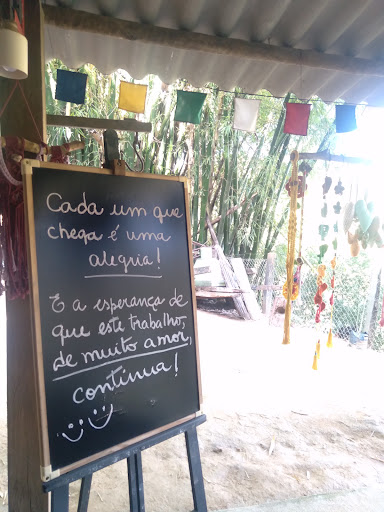 Cada um que
chega é uma
alegria!
E a esperança de
que este trabalho,
de muito amor,
continua!